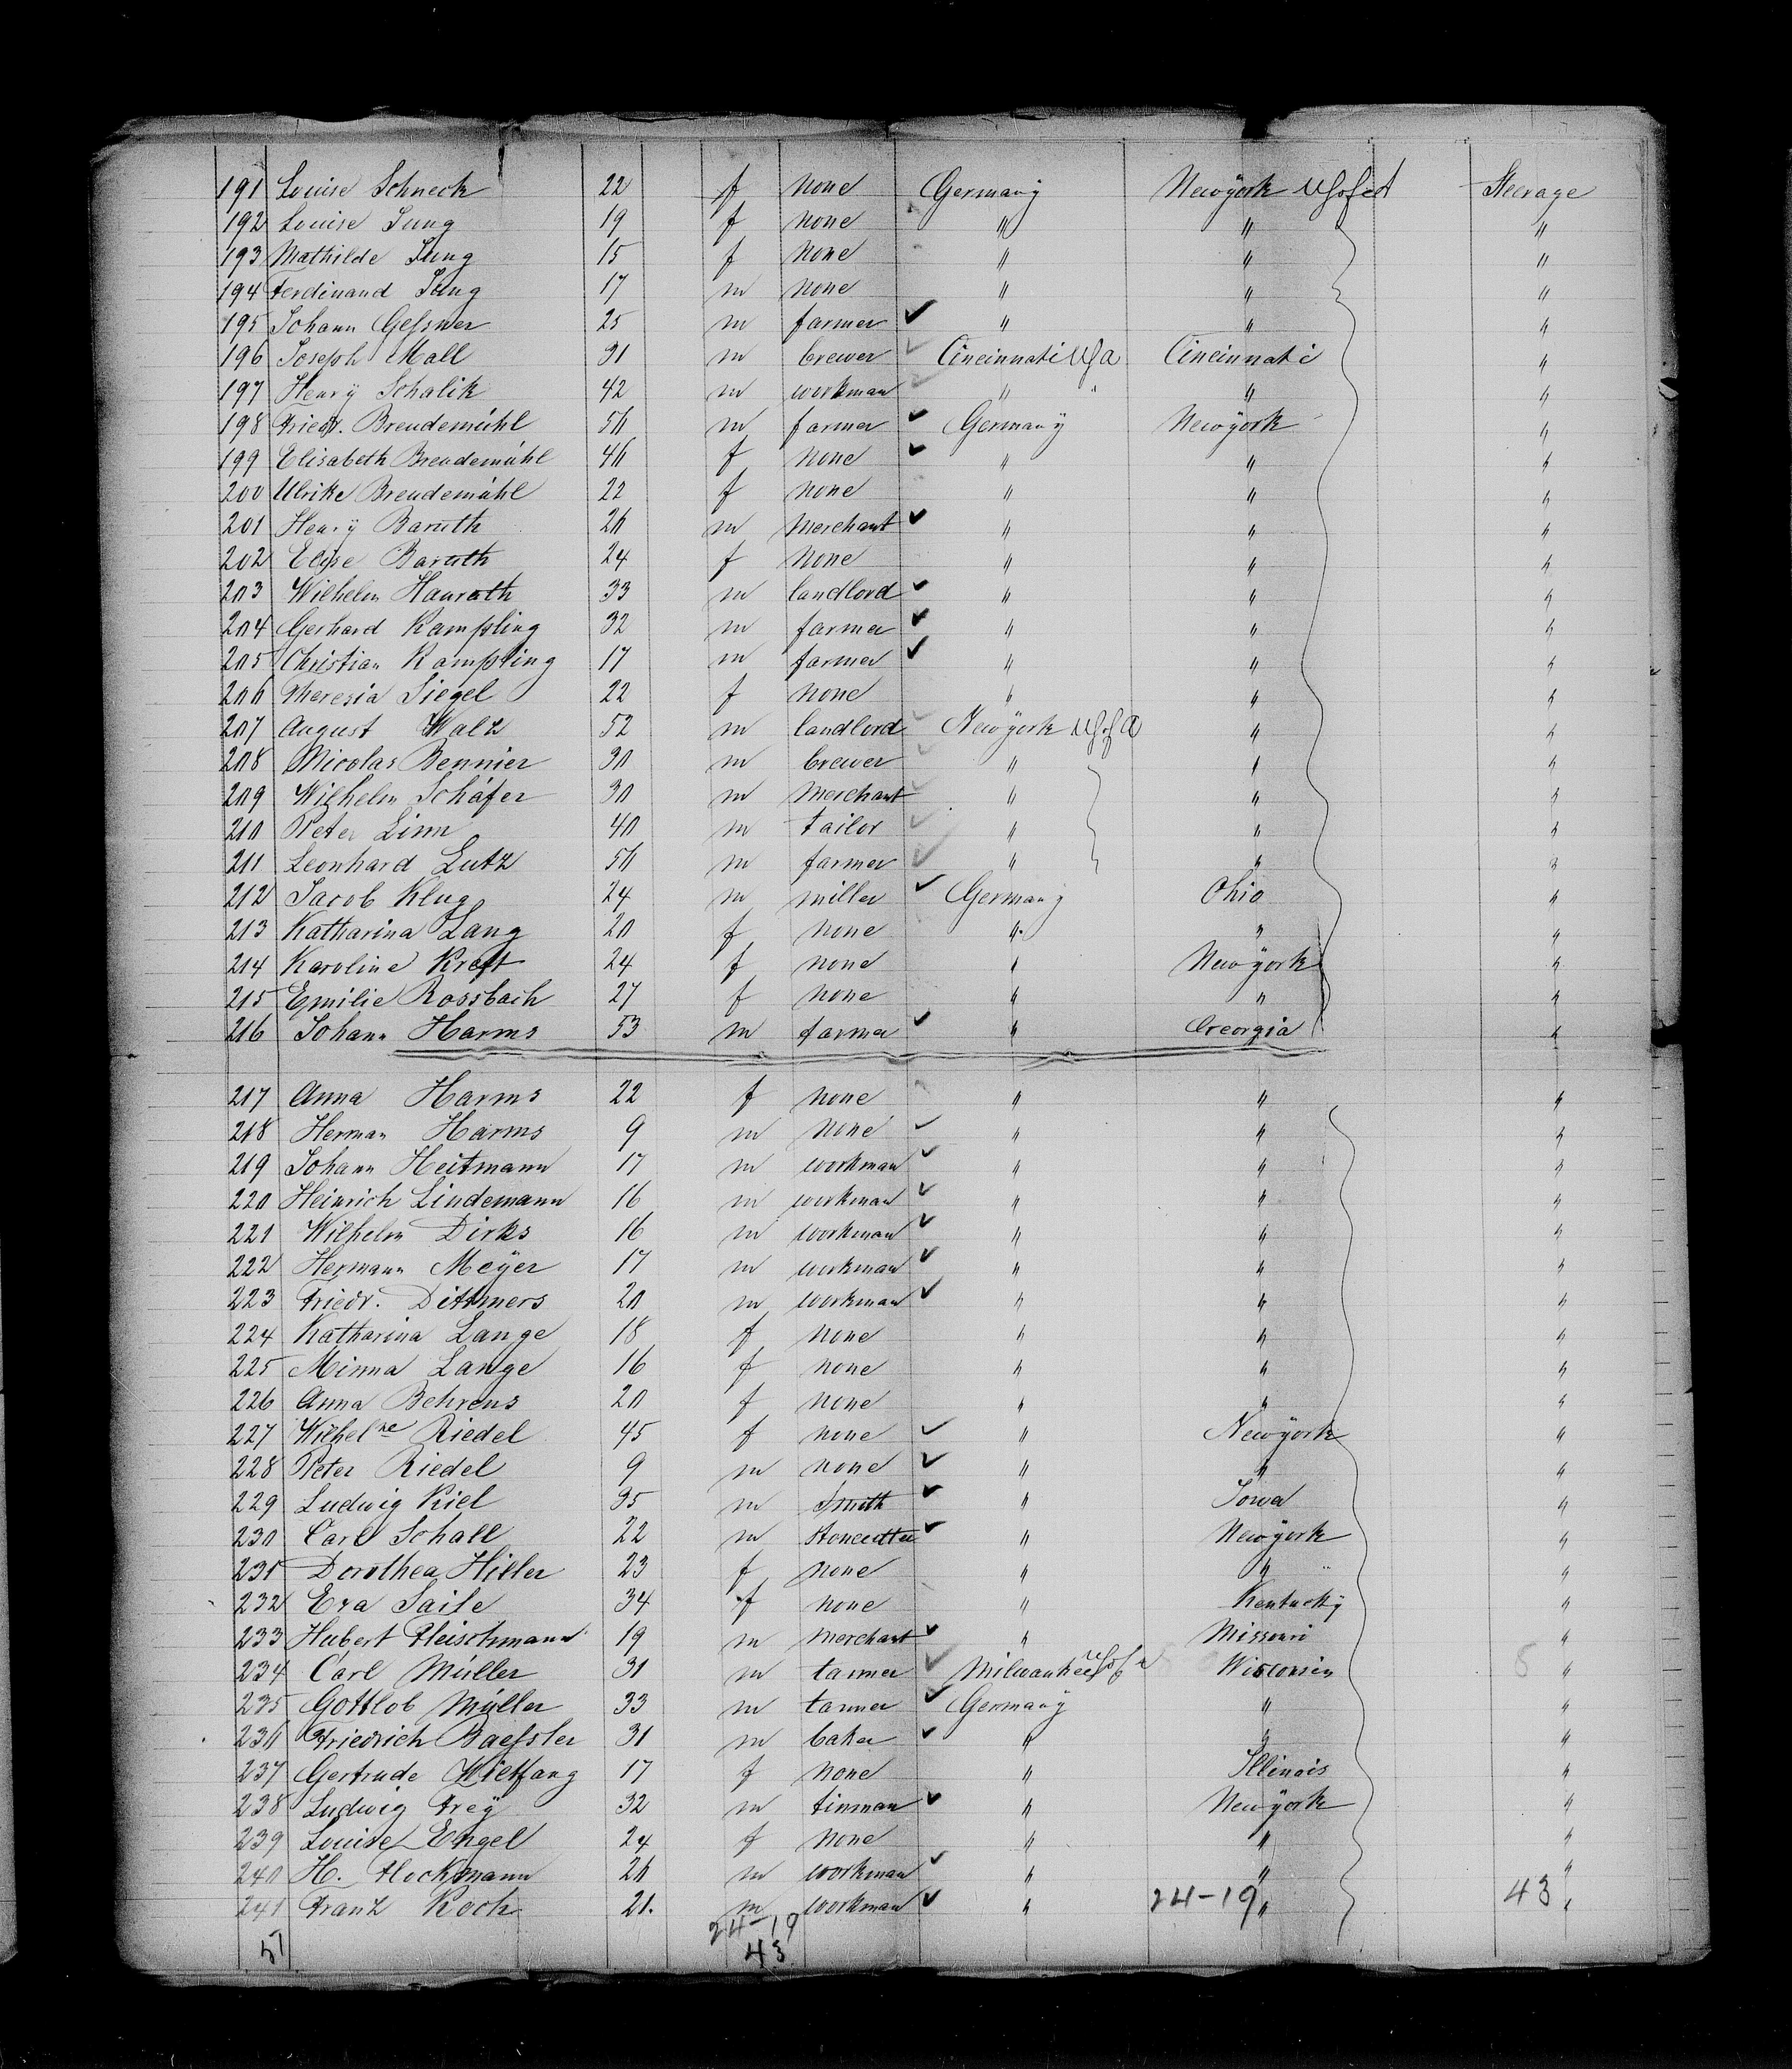 191 Louise Schneck 22 f none Germany Newyork U S of A Steerage
192 Louise Jung 19 f none " " "
193 Mathilde Jung 15 f none " " "
194 Ferdinand Jung 17 m none " " "
195 Johann Gessner 25 m farmer ✓ " " "
196 Joseph Mall 31 m brewer ✓ Cincinnati U S A Cincinnati "
197 Henry Schalik 42 m workman ✓ " " " "
198 Friedr. Breudemühl 56 m farmer ✓ Germany Newyork "
199 Elisabeth Breudemühl 46 f none ✓ " " "
200 Ulrike Breudemühl 22 f none " " "
201 Henry Baruth 26 m merchant ✓ " " "
202 Elise Baruth 24 f none " " "
203 Wilhelm Hanrath 33 m landlord ✓ " " "
204 Gerhard Kampling 32 m farmer ✓ " " "
205 Christian Kampling 17 m farmer ✓ " " "
206 Theresia Siegel 22 f none " " "
207 August Walz 52 m landlord ✓ Newyork U S of A " "
208 Nicolas Bennier 30 m brewer ✓ " " "
209 Wilhelm Schäfer 30 m merchant ✓ " " "
210 Peter Linn 40 m tailor ✓ " " "
211 Leonhard Lutz 56 m farmer ✓ " " "
212 Jacob Klug 24 m miller ✓ Germany Ohio "
213 Katharina Lang 20 f none " " "
214 Karoline Kraft 24 f none " Newyork "
215 Emilie Rossbach 27 f none " " "
216 Johann Harms 53 m farmer ✓ " Georgia "
217 Anna Harms 22 f none " " "
218 Herman Harms 9 m none ✓ " " "
219 Johann Heitmann 17 m workman ✓ " " "
220 Heinrich Lindemann 16 m workman ✓ " " "
221 Wilhelm Dirks 16 m workman ✓ " " "
222 Hermann Meyer 17 m workman ✓ " " "
223 Friedr. Dittmers 20 m workman ✓ " " "
224 Katharina Lange 18 f none " " "
225 Minna Lange 16 f none " " "
226 Anna Behrens 20 f none " " "
227 Wilhelne Riedel 45 f none ✓ " Newyork "
228 Peter Riedel 9 m none ✓ " " "
229 Ludwig Kiel 35 m Smith ✓ " Iowa "
230 Carl Schall 22 m Stonecutter ✓ " Newyork "
231 Dorothea Hiller 23 f none " " "
232 Eva Saile 34 f none " Kentucky "
233 Hubert Fleischmann 19 m merchant ✓ " Missouri "
234 Carl Müller 31 m tanner ✓ Milwaukee U S of A Wisconsin "
235 Gottlob Müller 33 m tanner ✓ Germany " "
236 Friedrich Baessler 31 m baker ✓ " " "
237 Gertrude Wielfang 17 f none " Illinois "
238 Ludwig Frey 32 m tinman ✓ " Newyork "
239 Louise Engel 24 f none " " "
240 H. Hockmann 26 m workman ✓ " " "
241 Franz Koch 21. m workman ✓ " 24-19 " 43 "
24-19
51 43